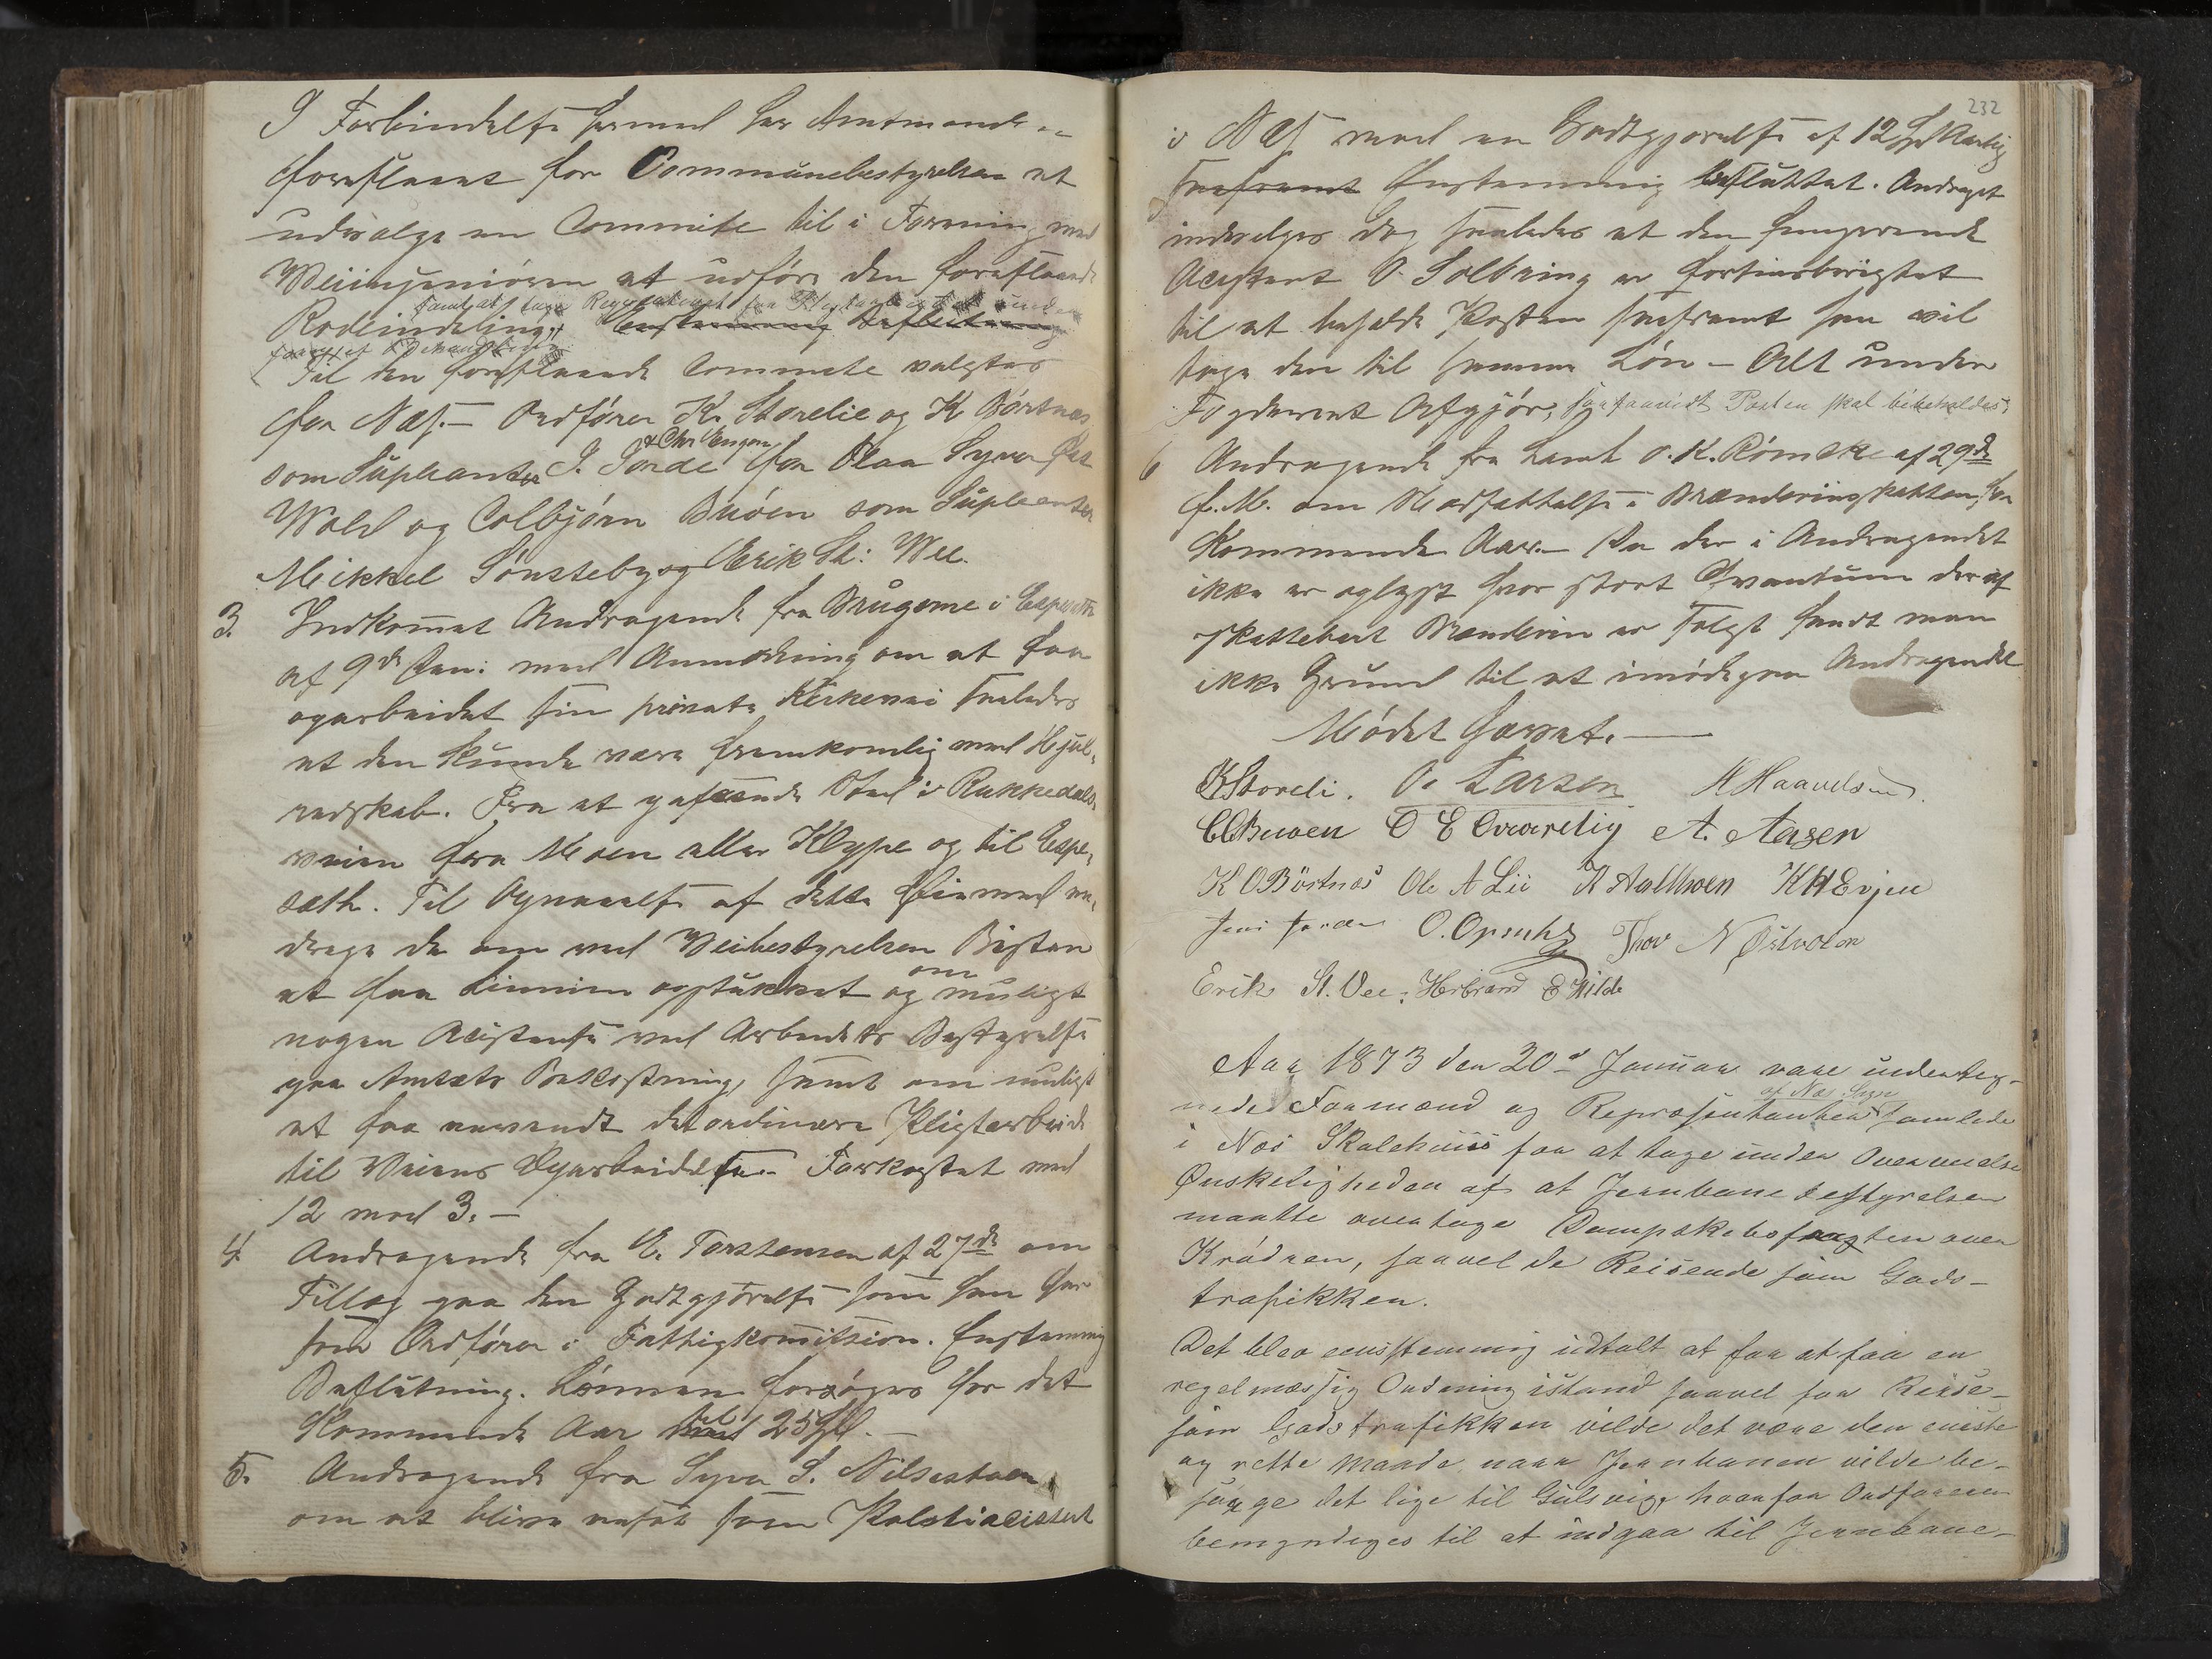 I Forbindelse hermed har Amtmanden
foreslaaet for Communebestyrelsen at
udvælge en Commite til i Forening med
Veiingeniøren at udføre den foreslaaede
samt at tage Regulativet for Pligtarbeidet under
Rodeinddeling. Eenstemmig Beslutning
fornyet Behandling
Til den foreslaaede Commite valgtes
for Næs.— Ordfører K. Storelie og K Börtnæs
& Chr Evjen
som Supleanter J. Jorde for Flaa Syver Ols
Wold og Colbjörn Bruøen som Supleanter
Mikkel Sønsteby og Erik St: Wee.
3. Indkommet Andragende fra Brugerne i Espeseth
af 9de Jan: med Anmodning om at faa
oparbeidet sin private Kirkevei saaledes
at den kunde være fremkomlig med Hjul-
redskab. Fra et passende Sted i Rukkedals-
veien fra Moen eller Klype og til Espe-
sæth. Til Opnaaelse af dette Øiemed an-
drage de om ved Veibestyrelsen Bistan
om
at faa Linnien opstukket og muligt
nogen Acistense ved Arbeidets Bestyrelse
paa Amtets Bekostning, samt om muligt
at faa anvendt det ordinære Pligtarbeide
til Veiens Oparbeidelse.— Forkastet med
12 mod 3.—
4. Andragende fra E. Torstensen af 27de om
Tillæg paa den Godtgjörelse som han har
som Ordfører i Fattigkommission. Enstemmig
Beslutning. Lønnen forøges for det
til
Kommende Aar med 25 Spl.—
5. Andragende fra Syver S. Nilsestuen
om at blive ansat som Politiacistent
232
i Næs mod en Godtgjørelse af 12 Spd Aarlig
saafremt Enstemmig besluttet. Andraget
indvilges dog saaledes at den fungerende
Acistent O. Solbring er fortrinsberigtet
til at beholde Posten saafremt han vil
tage den til samme Løn – Alt under
Fogderiets Afgjör, saafremt Posten skal bibeholdes.
6 Andragende fra Lamt O. K. Römcke af 29de
f. M. om Nedsættelse i Brænderinskatten, for
Kommende Aar.— Da der i Andragendet
ikke er oplyst hvor stort Qvantum deraf
skattebart Brændevin er solgt fandt man
ikke Grund til at imødegaa Andragendet
Mødet hævet.—
KStoreli. O. Larsen H Haavelsen.
CCBruøen O E Qvarelig A. Aasen
K O Börtnæs Ole A Lii A Aallhoen K H Evjen
Jens Jorde O. Opsahl Thov N Östvolen
Erik St. Vee. Herbrand E Hilde
Aar 1873 den 20d Januar vare underteg-
af Næs Sogn
nede Formænd og Repræsentanter samlede
i Næs Skolehuus for at tage under Overveielse
Ønskeligheden af at Jernbanebestyrelsen
maatte overtage Dampskibsfragten over
Kröderen, saavel de Reisende som Gods-
trafikken.
Det blev eenstemmig udtalt at for at faa en
regelmæssig Ordning istand saavel for Reise-
som Godstrafikken vilde det være den eneste
og rette Maade naar Jernbanen vilde be-
sørge det lige til Gulsvig, hvorfor Ordføreren
bemyndiges til at indgaa til Jernbane-